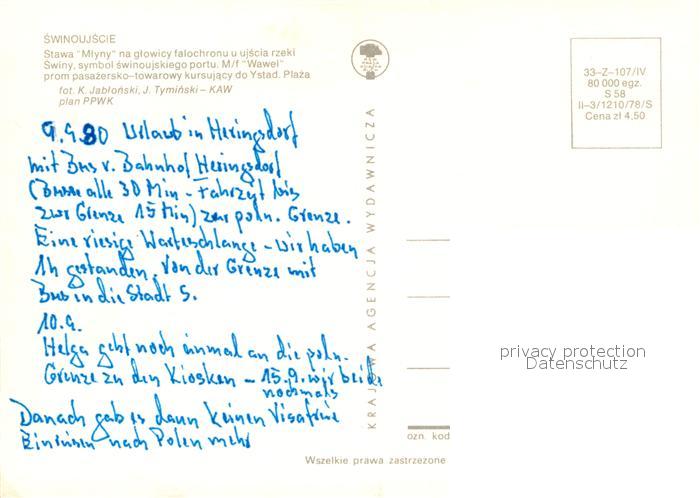 ŚWINOUJŚCIE
Stawa "Młyny" na głowicy falochronu u ujścia rzeki
Świny, symbol świnoujskiego portu. M/f "Wawel"
prom pasażersko-towarowy kursujący do Ystad. Plaża
fot. K. Jabłoński, J. Tymiński – KAW
plan PPWK
33-Z-107/IV
80 000 egz.
S 58
II-3/1210/78/S
Cena zł 4,50
9.9.80 Urlaub in Heringsdorf
mit Bus v. Bahnhof Heringsdorf
(Busse alle 30 Min - Fahrzeit bis
zur Grenze 15 Min) zur poln. Grenze.
Eine riesige Warteschlange - wir haben
1h gestanden. Von der Grenze mit
Bus in die Stadt S.
10.9.
Helga geht noch einmal an die poln.
Grenze zu den Kiosken - 15.9. wir beide
nochmals
Danach gab es dann keinen Visafreie
Einreisen nach Polen mehr
KRAJOWA AGENCJA WYDAWNICZA
privacy protection
Datenschutz
ozn. kod
Wszelkie prawa zastrzeżone